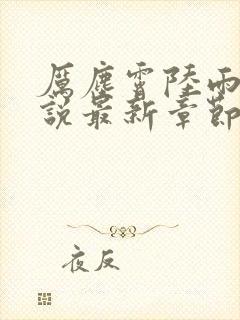 厲塵霄陸雨
說最新章節
夜反